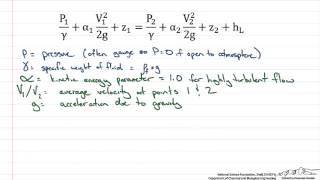 P₁/γ + α₁ V₁²/2g + z₁ = P₂/γ + α₂ V₂²/2g + z₂ + hL
P = pressure (often gauge so P=0 if open to atmosphere)
γ = specific weight of fluid = ρ·g
α = kinetic energy parameter = 1.0 for highly turbulent flow
V₁/V₂ = average velocity at points 1 & 2
g: acceleration due to gravity
Department of Chemical and Biological Engineering